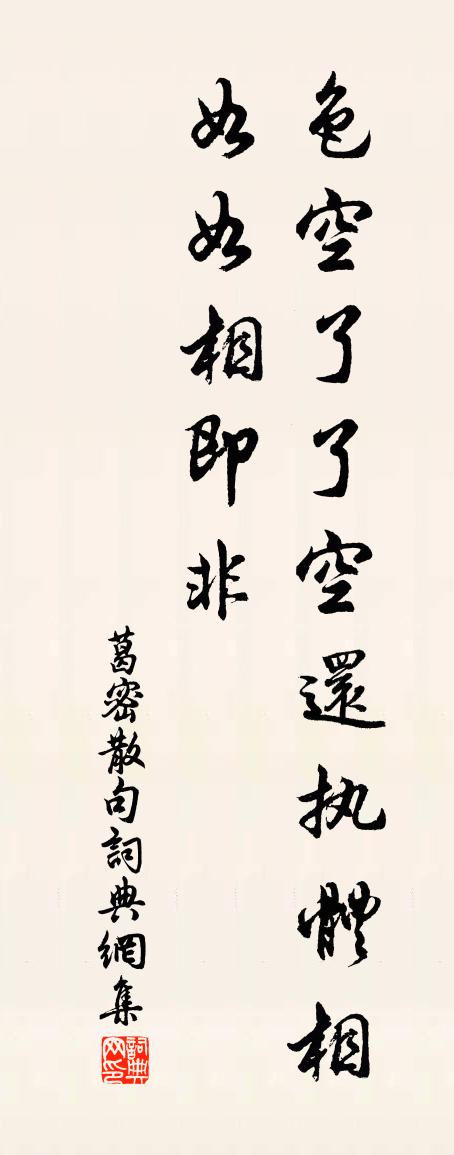 色空了了空還执體相
如如相即非
葛密散句詞典網集
詞典网印